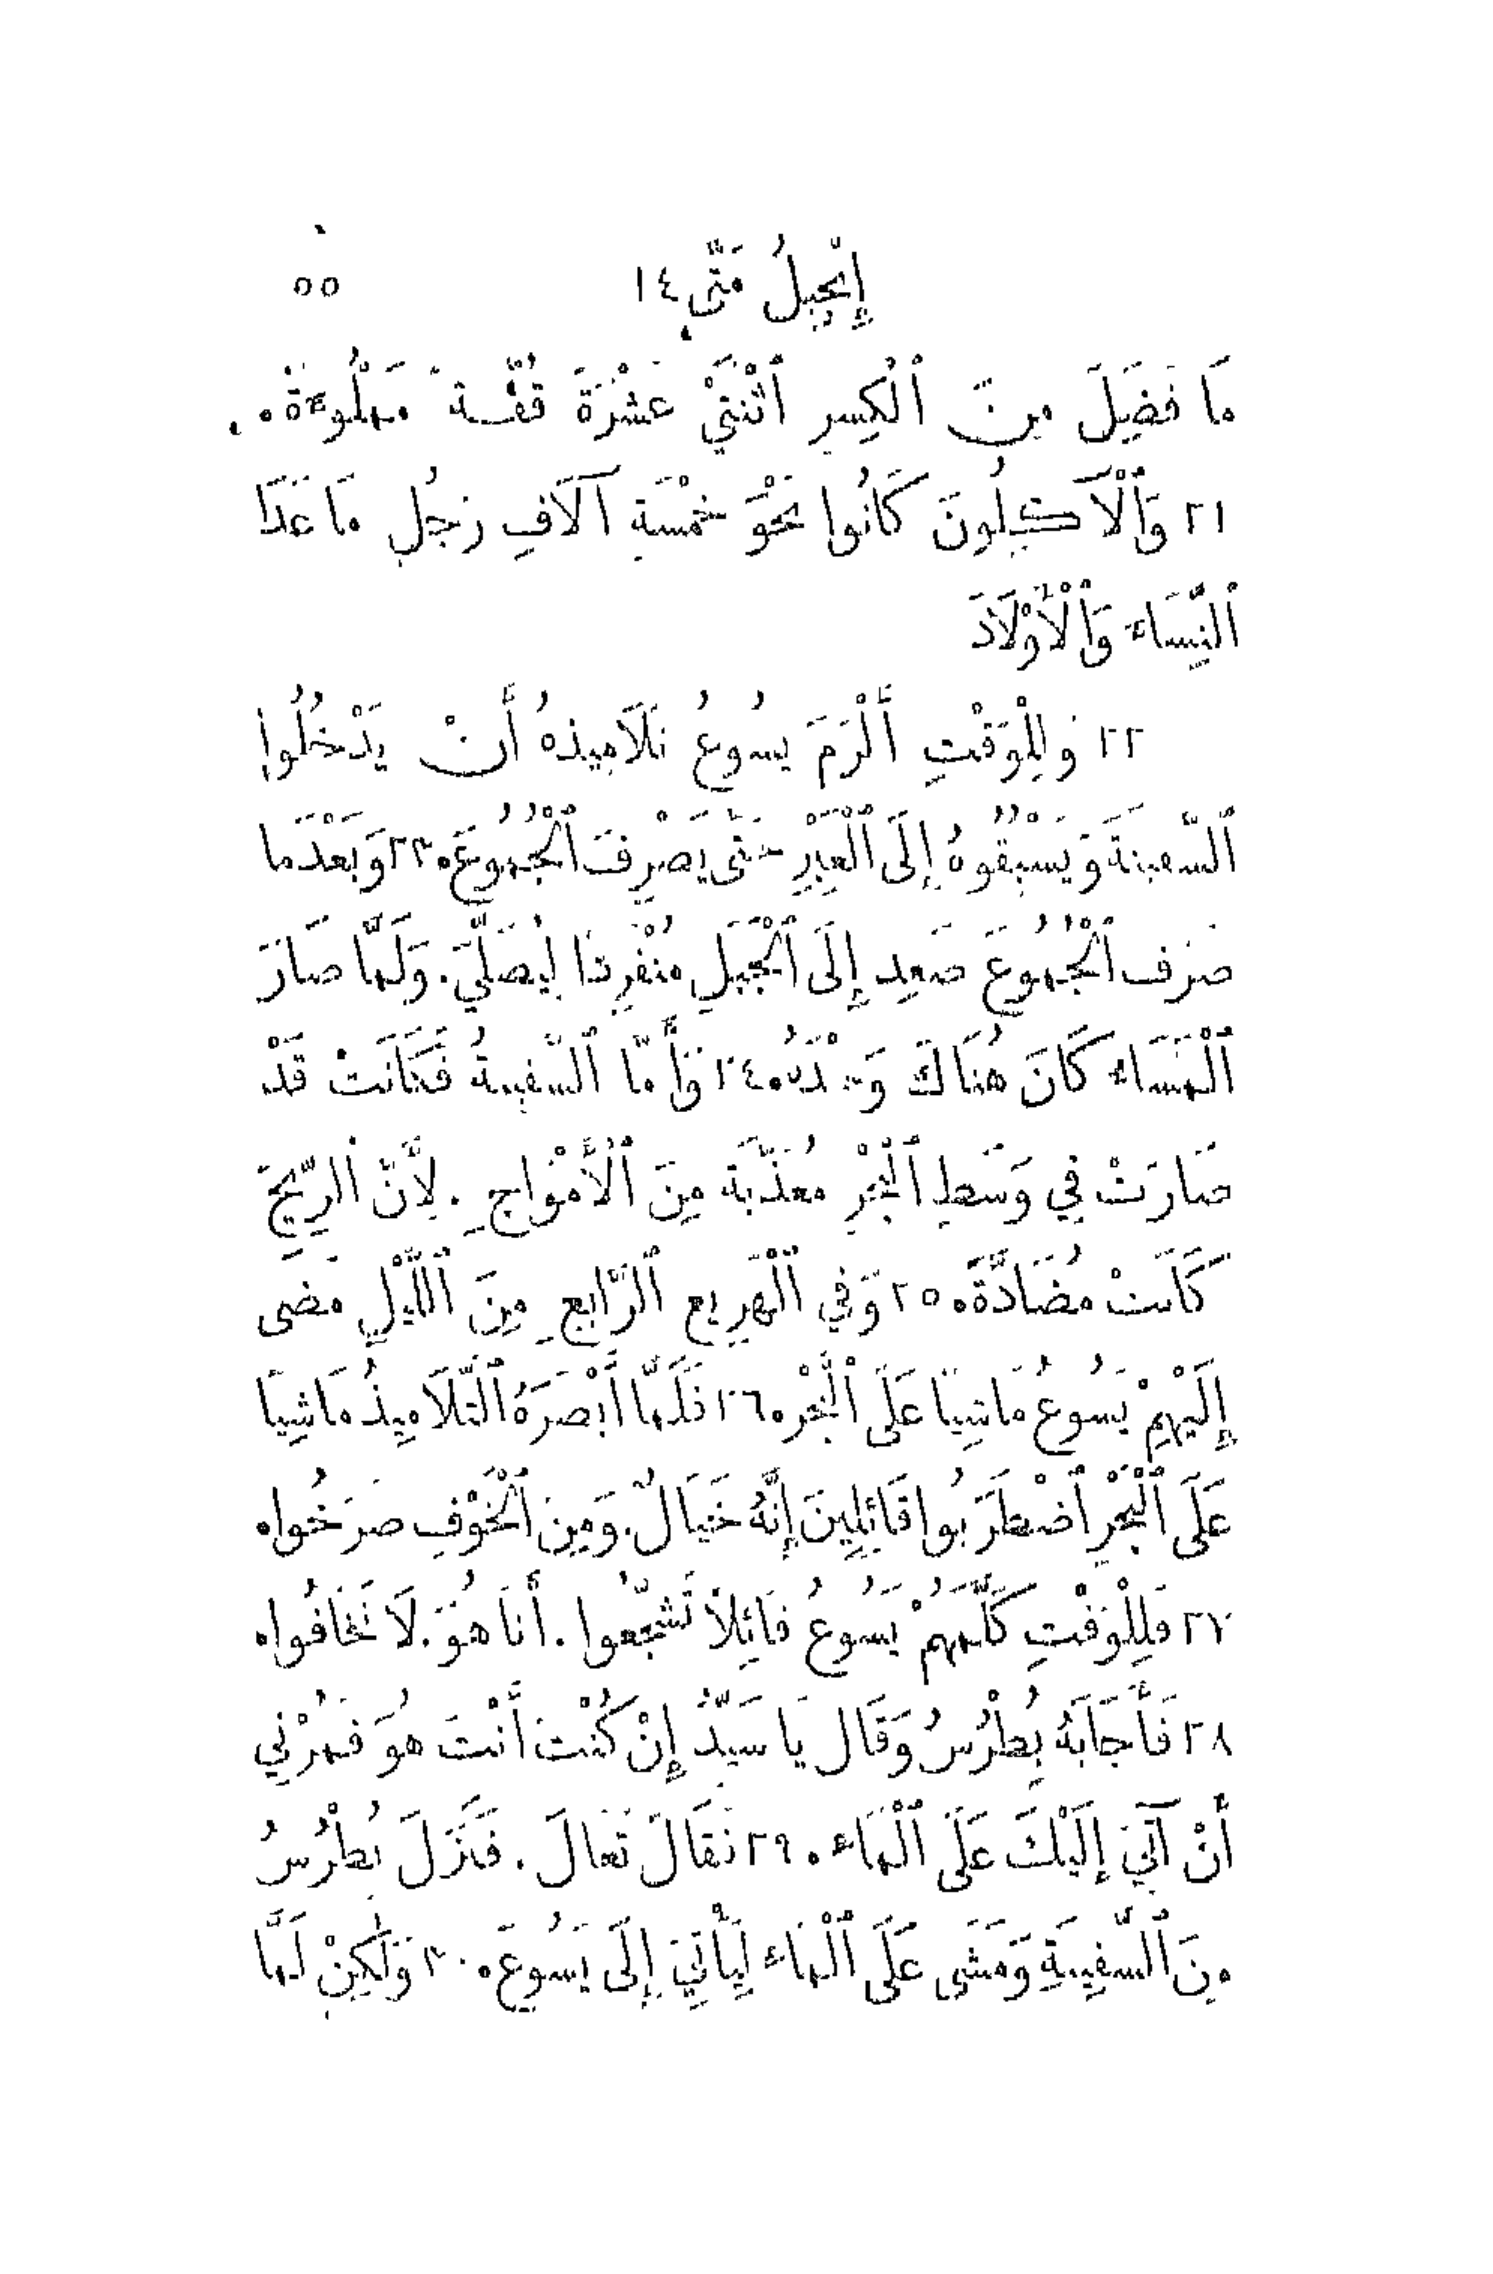 إِنْجِيلُ مَتَّى ١٤ ٥٥
مَا فَضِلَ مِنَ ٱلْكِسَرِ ٱثْنَتَيْ عَشْرَةَ قُفَّةً مَمْلُوءَةً.
٢١ وَٱلْآكِلُونَ كَانُوا نَحْوَ خَمْسَةِ آلَافِ رَجُلٍ مَا عَدَا
ٱلنِّسَاءَ وَٱلْأَوْلَادَ
٢٢ وَلِلْوَقْتِ أَلْزَمَ يَسُوعُ تَلَامِيذَهُ أَنْ يَدْخُلُوا
ٱلسَّفِينَةَ وَيَسْبِقُوهُ إِلَى ٱلْعِبْرِ حَتَّى يَصْرِفَ ٱلْجُمُوعَ. ٢٣ وَبَعْدَمَا
صَرَفَ ٱلْجُمُوعَ صَعِدَ إِلَى ٱلْجَبَلِ مُنْفَرِدًا لِيُصَلِّيَ. وَلَمَّا صَارَ
ٱلْمَسَاءُ كَانَ هُنَاكَ وَحْدَهُ. ٢٤ وَأَمَّا ٱلسَّفِينَةُ فَكَانَتْ قَدْ
صَارَتْ فِي وَسَطِ ٱلْبَحْرِ مُعَذَّبَةً مِنَ ٱلْأَمْوَاجِ. لِأَنَّ ٱلرِّيحَ
كَانَتْ مُضَادَّةً. ٢٥ وَفِي ٱلْهَزِيعِ ٱلرَّابِعِ مِنَ ٱللَّيْلِ مَضَى
إِلَيْهِمْ يَسُوعُ مَاشِيًا عَلَى ٱلْبَحْرِ. ٢٦ فَلَمَّا أَبْصَرَهُ ٱلتَّلَامِيذُ مَاشِيًا
عَلَى ٱلْبَحْرِ ٱضْطَرَبُوا قَائِلِينَ إِنَّهُ خَيَالٌ. وَمِنَ ٱلْخَوْفِ صَرَخُوا.
٢٧ فَلِلْوَقْتِ كَلَّمَهُمْ يَسُوعُ قَائِلًا تَشَجَّعُوا. أَنَا هُوَ. لَا تَخَافُوا.
٢٨ فَأَجَابَهُ بُطْرُسُ وَقَالَ يَا سَيِّدُ إِنْ كُنْتَ أَنْتَ هُوَ فَمُرْنِي
أَنْ آتِيَ إِلَيْكَ عَلَى ٱلْمَاءِ. ٢٩ فَقَالَ تَعَالَ. فَنَزَلَ بُطْرُسُ
مِنَ ٱلسَّفِينَةِ وَمَشَى عَلَى ٱلْمَاءِ لِيَأْتِيَ إِلَى يَسُوعَ. ٣٠ وَلٰكِنْ لَمَّا